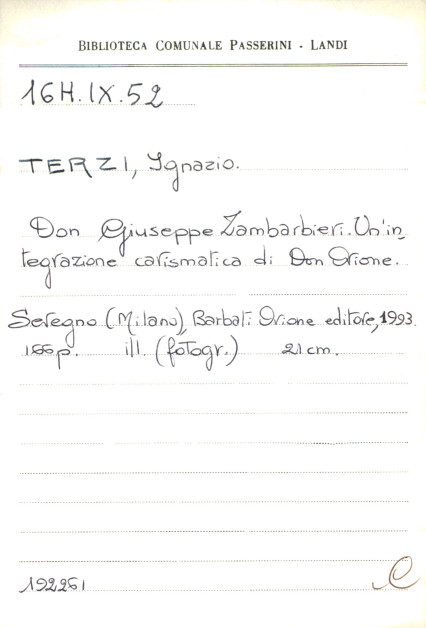 BIBLIOTECA COMUNALE PASSERINI - LANDI
16H.IX.52
TERZI, Ignazio.
Don Giuseppe Zambarbieri. Un'in_
tegrazione carismatica di Don Orione.
Seregno (Milano), Barbati Orione editore, 1993.
166p. ill. (fotogr.) 21 cm.
192261